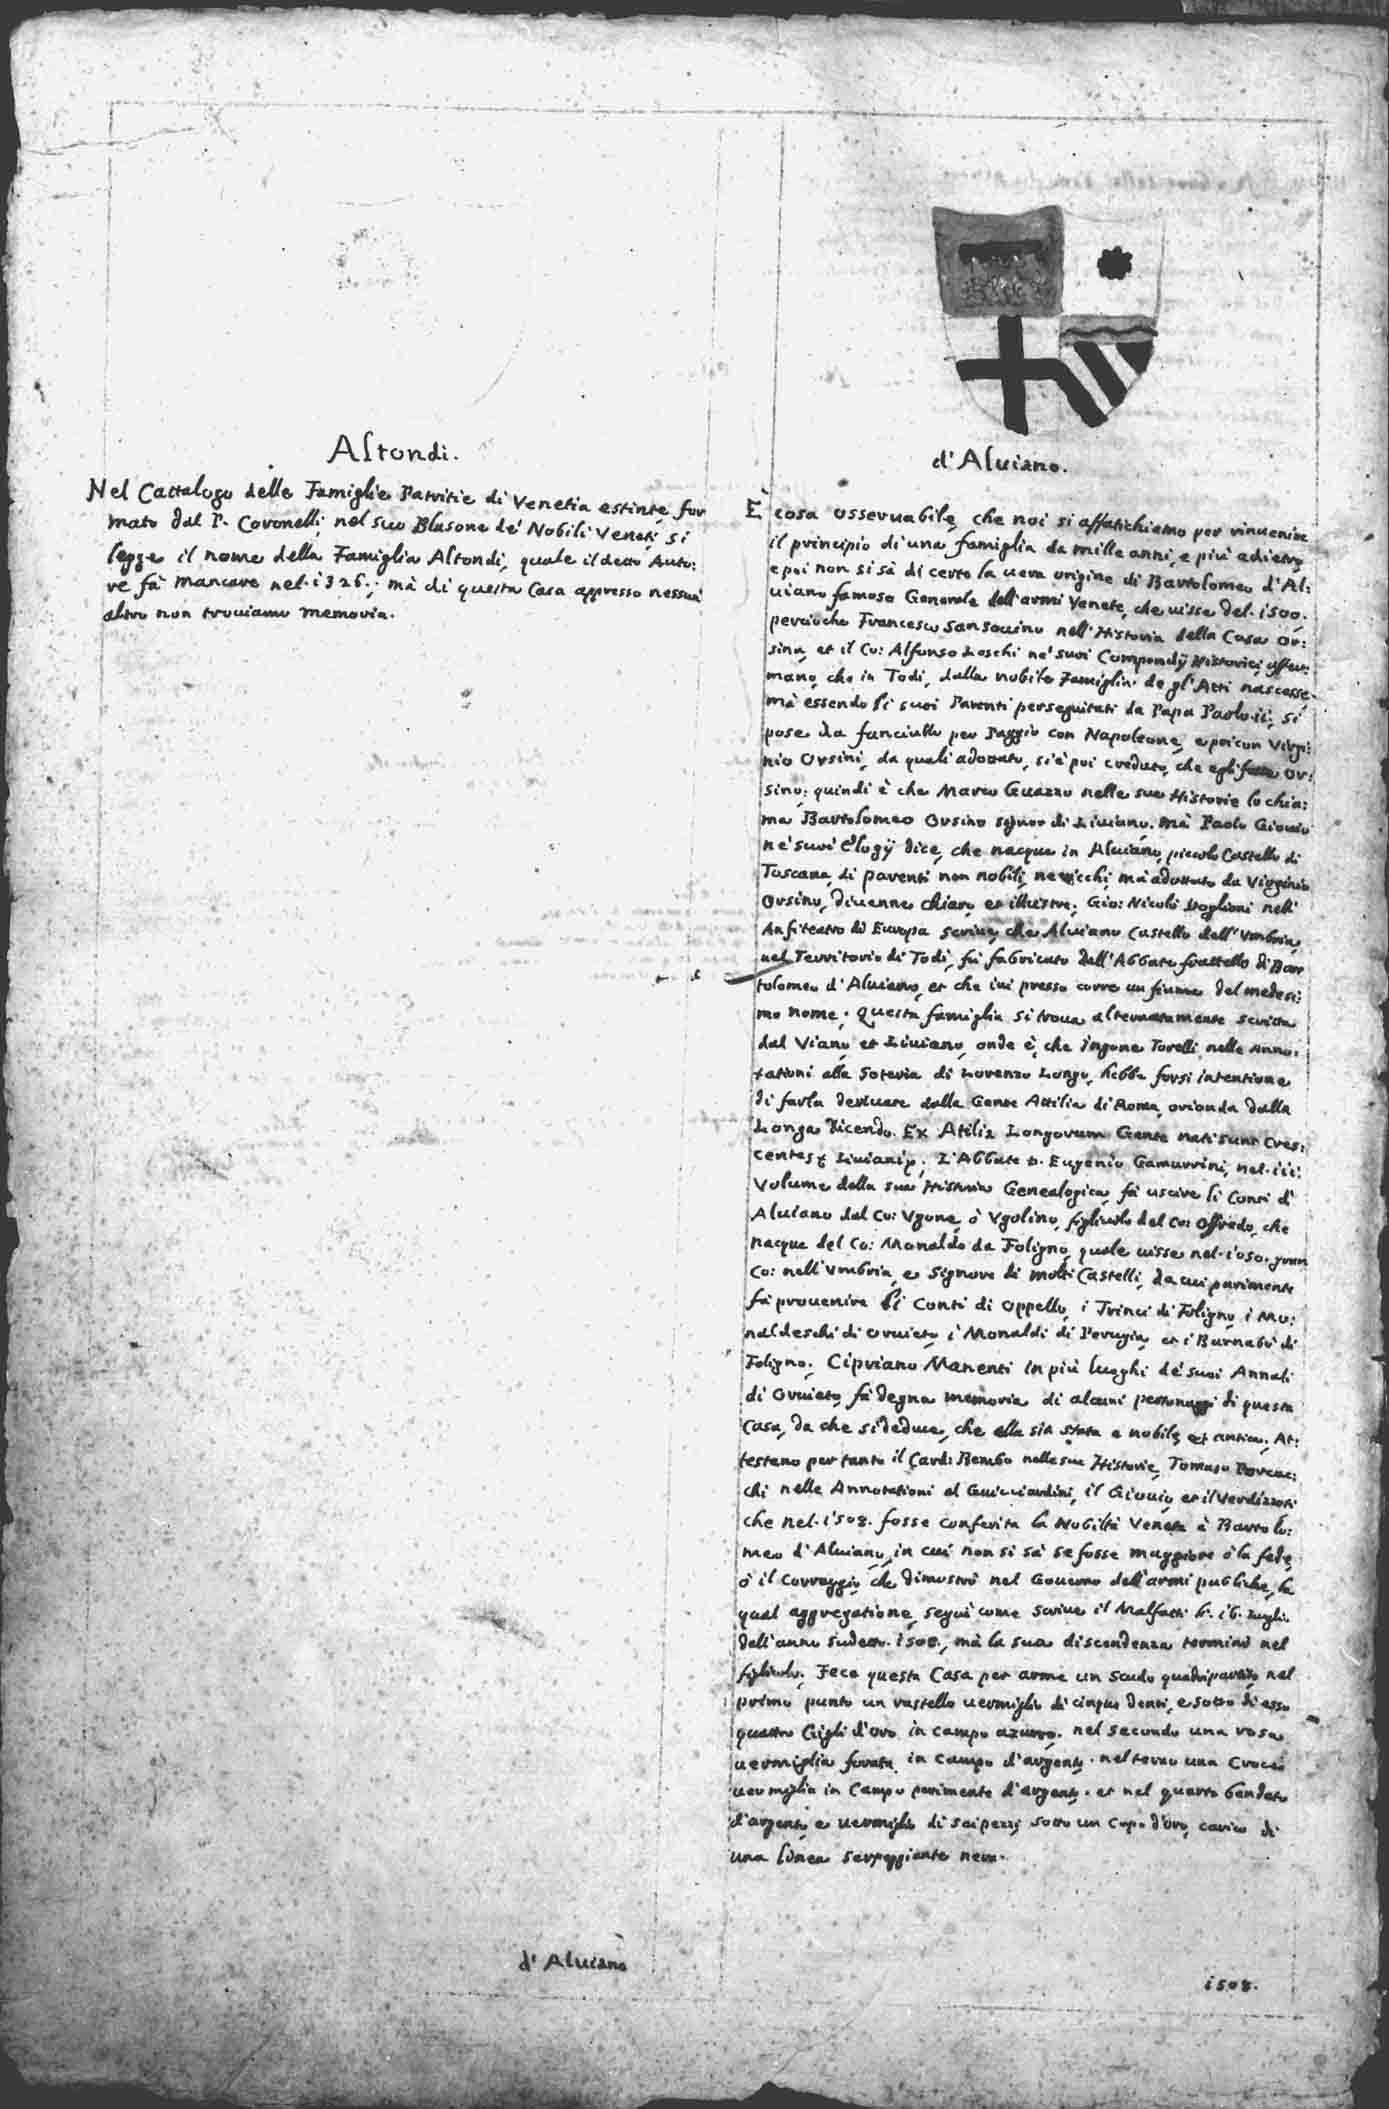 Altondi.
Nel Cattalogo delle Famiglie Patritie di Venetia estinte for
mato dal P. Coronelli, nel suo Blasone de' Nobili Veneti, si
legge il nome della Famiglia Altondi, quale il detto Auto:
re fà mancare nel. i326.; mà di questa Casa appresso nessun'
altro non trouiamo memoria.
d' Aluiano
d' Aluiano.
È cosa osseruabile, che noi si affatichiamo per rinuenire
il principio di una famiglia da mille anni, e più adietro,
e poi non si sà di certo la uera origine di Bartolomeo d' Al:
uiano famoso Generale dell'armi Venete, che uisse del. i500.
percioche Francesco Sansouino nell' Historia della Casa Or:
sina, et il Co: Alfonso Loschi ne' suoi Compendij Historici, affer:
mano, che in Todi, dalla nobile Famiglia de gl' Atti nascesse,
mà essendo li suoi Parenti perseguitati da Papa Paolo. ii., si
pose da fanciullo per Paggio con Napoleone, e poi con Virgi:
nio Orsini, da quali adottato, si è poi creduto, che egli fosse Or:
sino; quindi è che Marco Guazzo nelle sue Historie lo chia:
ma Bartolomeo Orsino signor di Liuiano. Mà Paolo Giouio
ne' suoi Elogij dice, che nacque in Aluiano, piccolo Castello di
Toscana, di parenti non nobili, ne ricchi, mà adottato da Virginio
Orsino, diuenne chiaro, et illustre. Gio: Nicolò Doglioni nell'
Anfiteatro di Europa scriue, che Aluiano Castello dell' Vmbria,
nel Territorio di Todi, fù fabricato dall' Abbate fratello di Bar
tolomeo d' Aluiano, et che iui presso corre un fiume del medesi:
mo nome. Questa famiglia si troua alternatamente scritta
dal Viano, et Liuiano, onde è, che Ingone Torelli nelle Anno:
tationi alla Soteria di Lorenzo Longo, hebbe forsi intentione
di farla deriuare dalla Gente Attilia di Roma, orionda dalla
Longa dicendo. Ex Atilia Longorum Gente nati sunt Cres:
centes, Liuianiq;. L' Abbate D. Eugenio Gamurrini, nel. iii.
Volume della sua Historia Genealogica, fà uscire li Conti d'
Aluiano dal Co: Vgone, ò Vgolino, figliuolo del Co: Offredo, che
nacque del Co: Monaldo da Foligno, quale uisse nel. i050. gran
Co: nell' Vmbria, e Signore di molti Castelli, da cui parimente
fà prouenire li Conti di Oppello, i Trinci di Foligno, i Mo:
naldeschi di Oruieto, i Monaldi di Perugia, et i Barnabò di
Foligno. Cipriano Manenti in più luoghi de' suoi Annali
di Oruieto, fà degna memoria di alcuni personaggi di questa
Casa, da che si deduce, che ella sia stata e nobile, et antica. At:
testano per tanto il Card: Bembo nelle sue Historie, Tomaso Porcac:
chi nelle Annotationi al Guicciardini, il Giouio, et il Verdizzoti
che nel. i508. fosse conferita la Nobiltà Veneta à Bartolo:
meo d' Aluiano, in cui non si sà se fosse maggiore ò la fede,
ò il Corraggio, che dimostrò nel Gouerno dell' armi publiche, la
qual aggregatione, seguì come scriue il Malfatti li. i6. Luglio
dell' anno sudetto. i508., mà la sua discendenza terminò nel
figliuolo. Fece questa Casa per arme un scudo quadripartito, nel
primo punto un rastello uermiglio di cinque denti, e sotto di esso
quattro Gigli d'oro in campo azurro. nel secondo una rosa
uermiglia forata in campo d'argento. nel terzo una Croce
uermiglia in Campo parimente d'argento. et nel quarto bendato
d'argento, e uermiglio di sei pezzi, sotto un Capo d'oro, carico di
una linea serpeggiante nera.
i508.